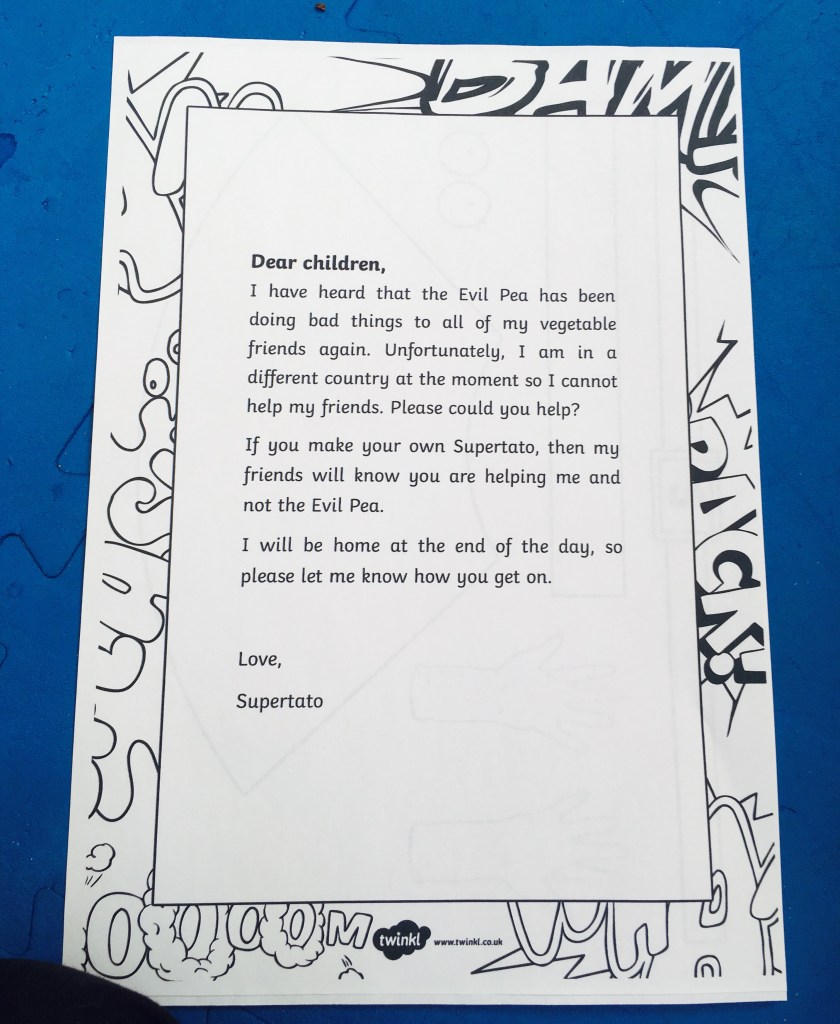 BAM!
Dear children,
I have heard that the Evil Pea has been
doing bad things to all of my vegetable
friends again. Unfortunately, I am in a
different country at the moment so I cannot
help my friends. Please could you help?
If you make your own Supertato, then my
friends will know you are helping me and
not the Evil Pea.
I will be home at the end of the day, so
please let me know how you get on.
Love,
Supertato
twinkl
www.twinkl.co.uk